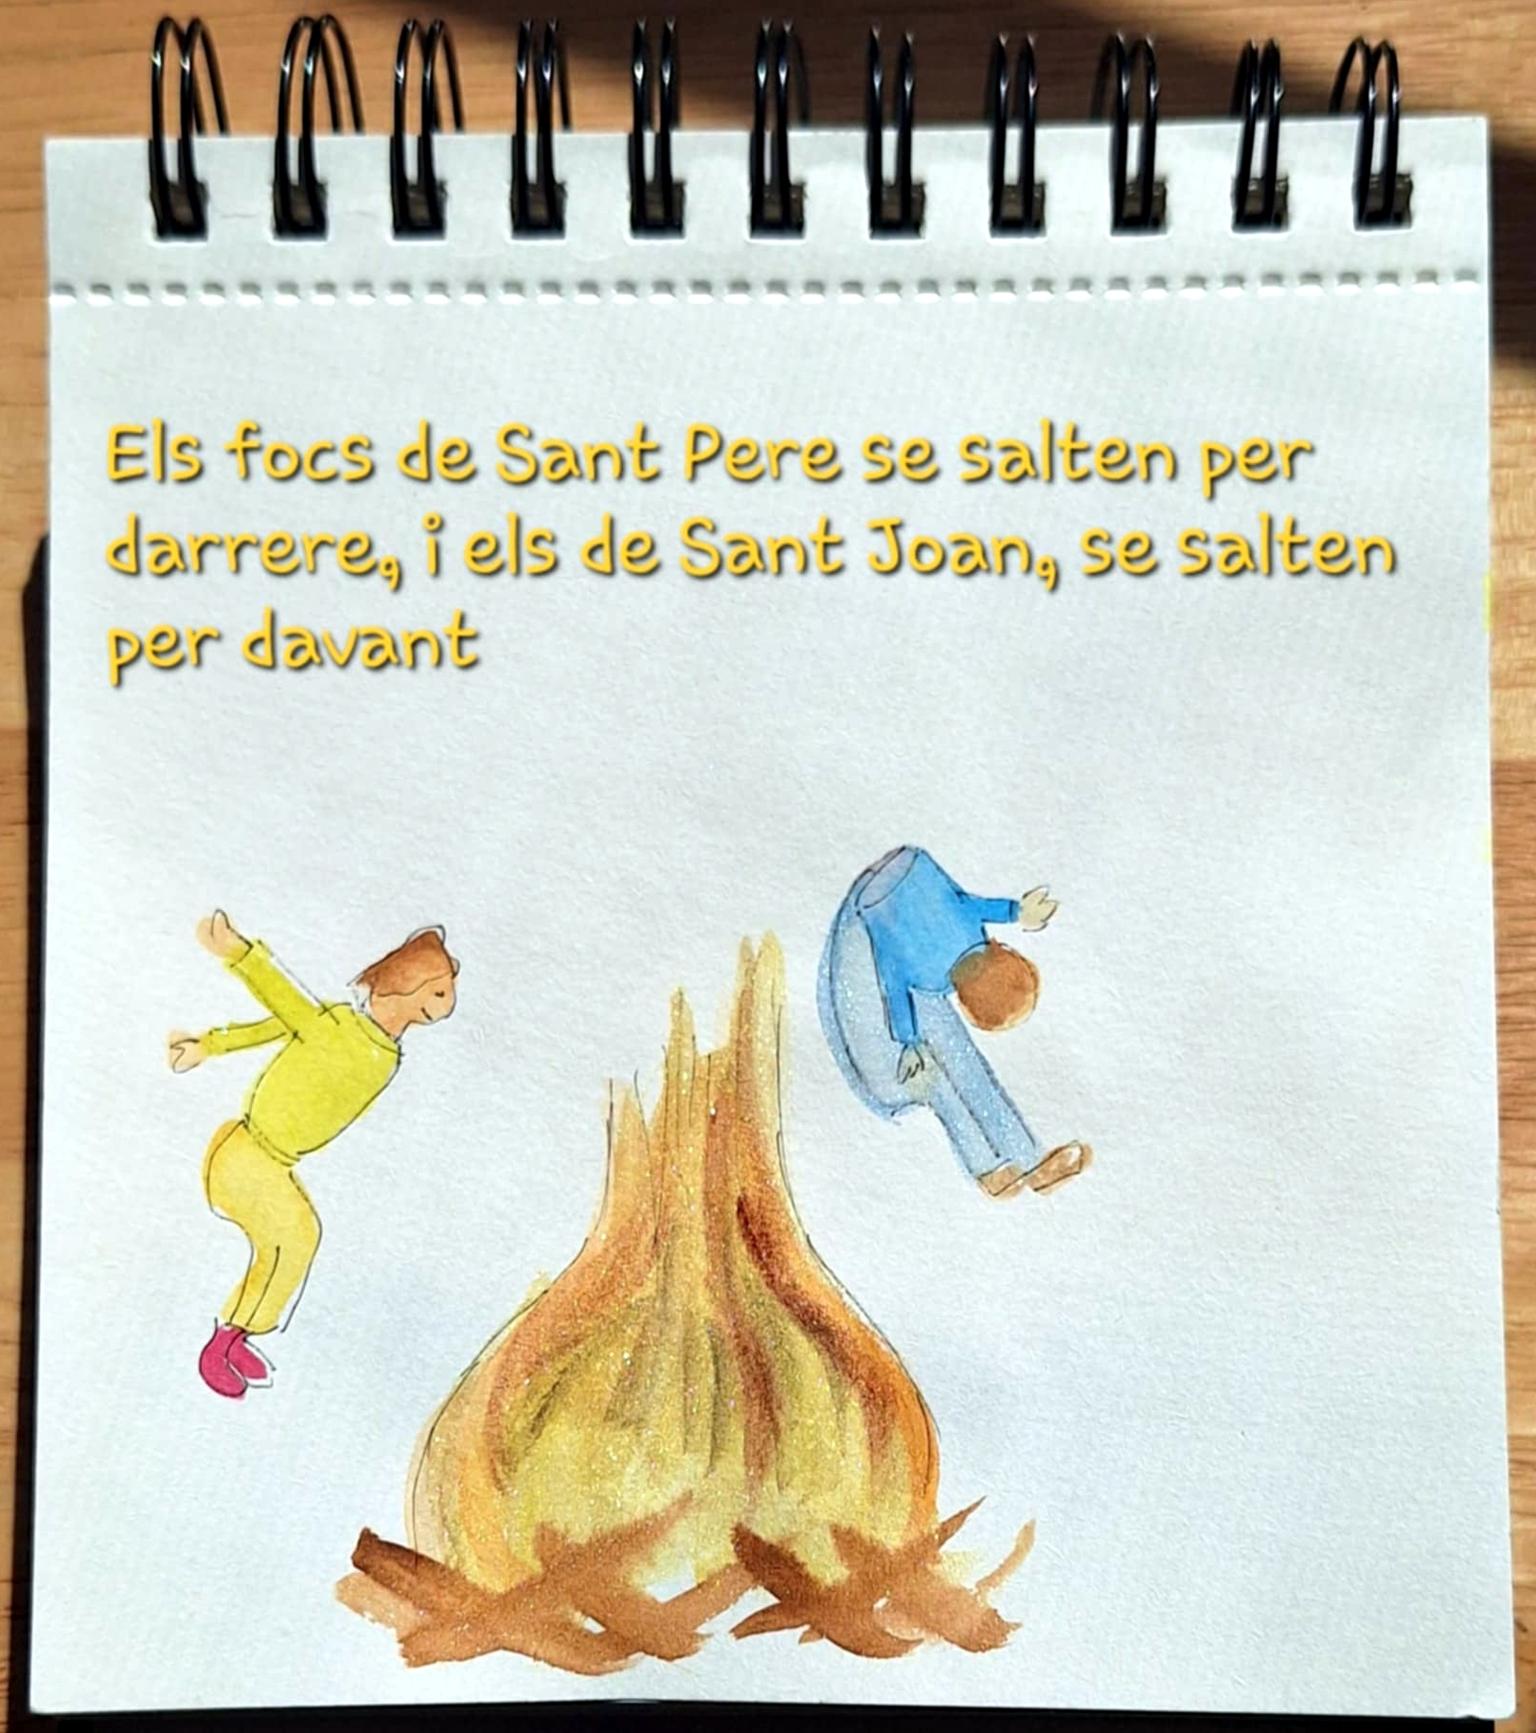 Els focs de Sant Pere se salten per
darrere, i els de Sant Joan, se salten
per davant